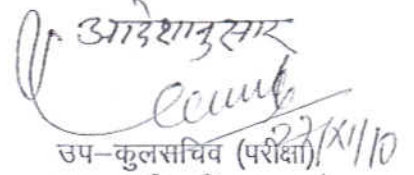 आदेशानुसार
उप-कुलसचिव (परीक्षा) 27/XI/10